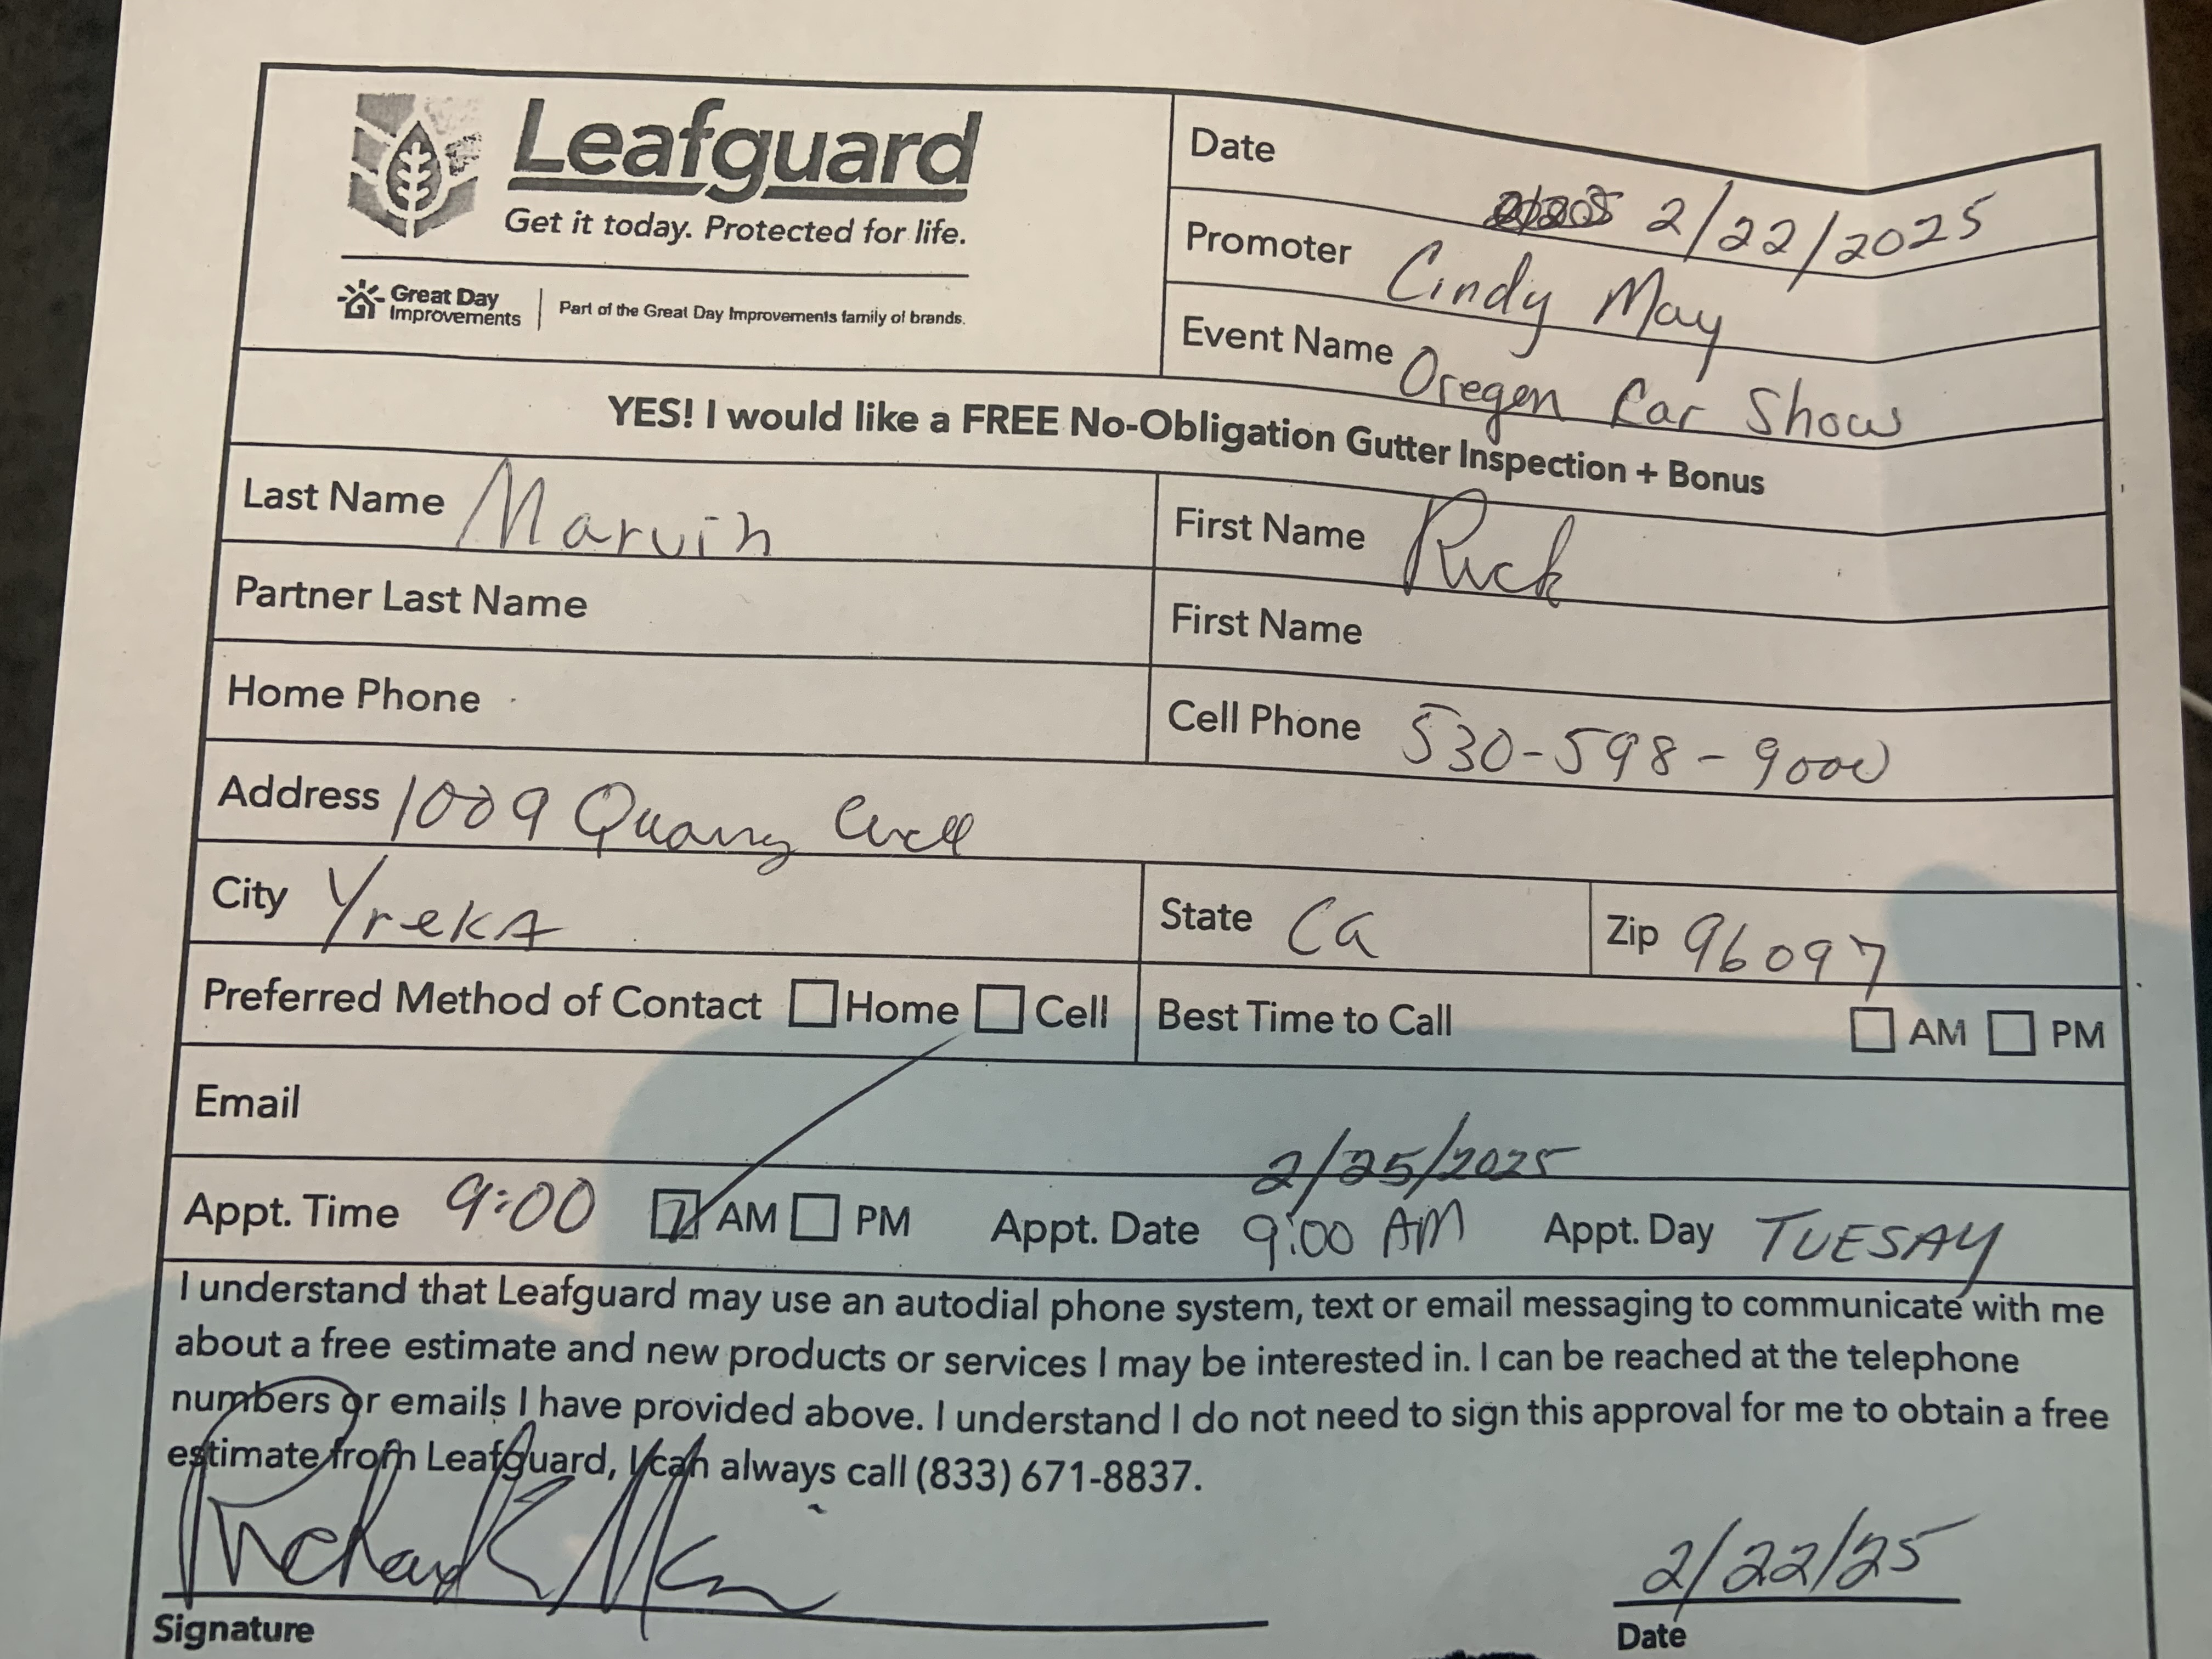 Leafguard
Get it today. Protected for life.
Great Day Improvements | Part of the Great Day Improvements family of brands.
Date 2/22/2025
Promoter Cindy May
Event Name Oregon Car Show
YES! I would like a FREE No-Obligation Gutter Inspection + Bonus
Last Name Marvin First Name Rich
Partner Last Name First Name
Home Phone Cell Phone 530-598-9000
Address 1009 Quany Circle
City YrekA State Ca Zip 96097
Preferred Method of Contact Home Cell Best Time to Call AM PM
Email
2/25/2025
Appt. Time 9:00 AM PM Appt. Date 9:00 AM Appt. Day TUESAY
I understand that Leafguard may use an autodial phone system, text or email messaging to communicate with me
about a free estimate and new products or services I may be interested in. I can be reached at the telephone
numbers or emails I have provided above. I understand I do not need to sign this approval for me to obtain a free
estimate from Leafguard, I can always call (833) 671-8837.
2/22/25
Signature Date